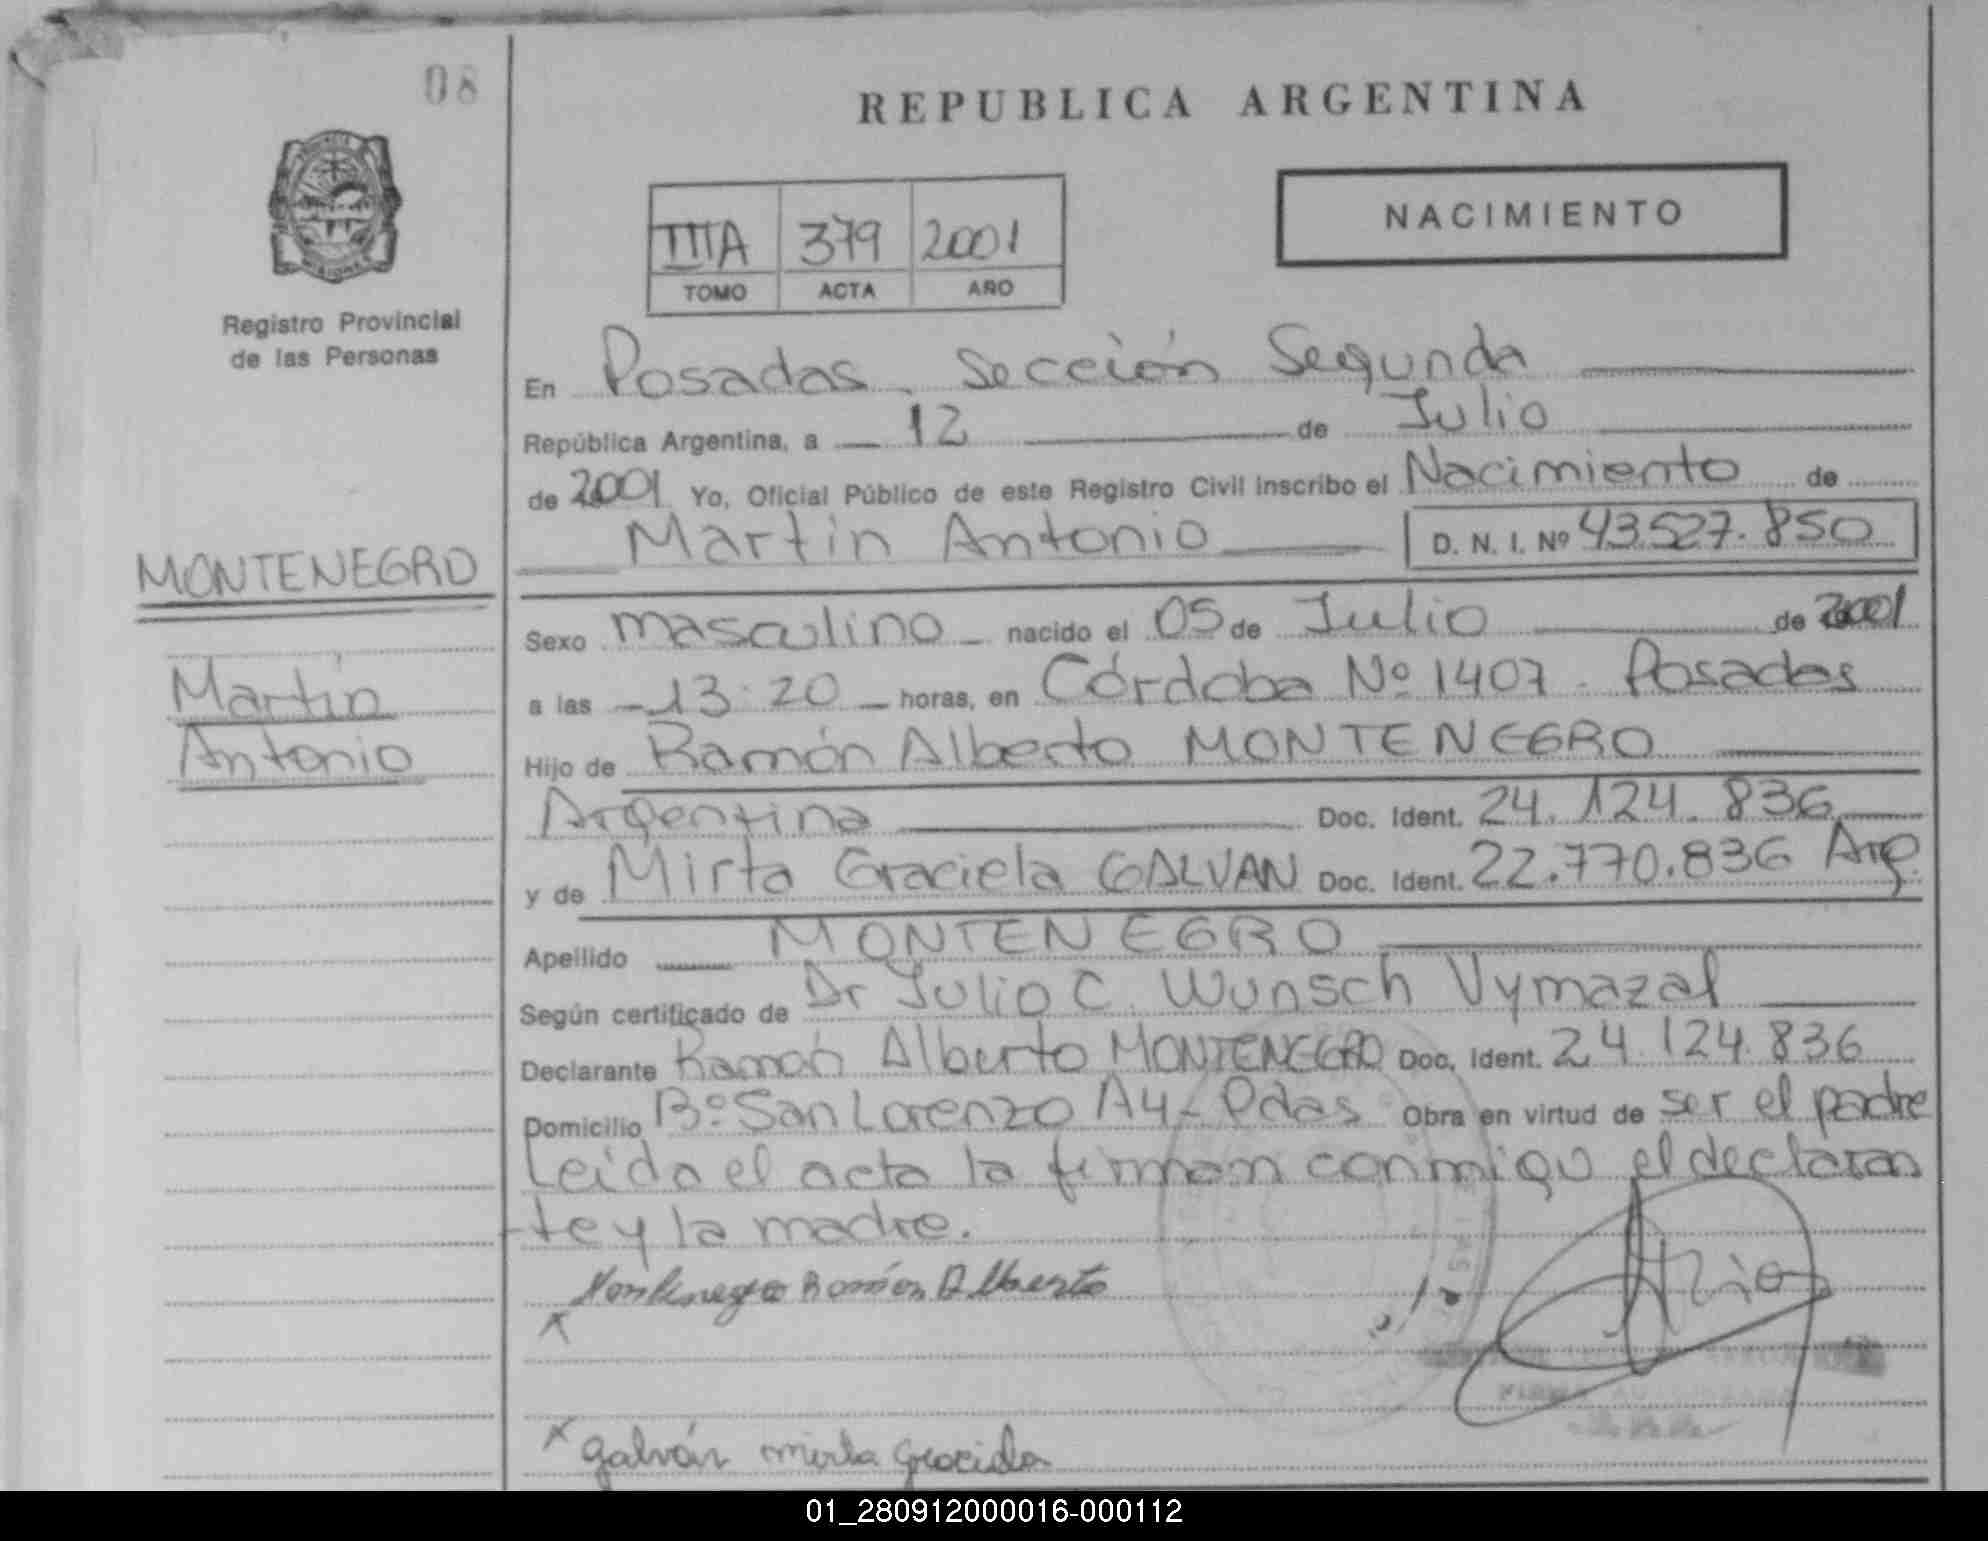 08
REPUBLICA ARGENTINA
NACIMIENTO
IIIA 379 2001
TOMO ACTA AÑO
Registro Provincial
de las Personas
En Posadas, Sección Segunda
República Argentina, a 12 de Julio
de 2001 Yo, Oficial Público de este Registro Civil inscribo el Nacimiento de
Martin Antonio D. N. I. Nº 43.527.850
MONTENEGRO
Martin
Antonio
Sexo masculino nacido el 05 de Julio de 2001
a las 13:20 horas, en Córdoba Nº 1407 - Posadas
Hijo de Ramón Alberto MONTENEGRO
Argentina Doc. Ident. 24.124.836
y de Mirta Graciela GALVAN Doc. Ident. 22.770.836 Arg.
Apellido MONTENEGRO
Según certificado de Dr Julio C. Wunsch Vymazal
Declarante Ramón Alberto MONTENEGRO Doc. Ident. 24.124.836
Domicilio Bº San Lorenzo A4 - Pdas Obra en virtud de ser el padre
Leida el acta la firman conmigo el declaran
te y la madre.
Montenegro Ramón Alberto
x
x Galván Mirta Graciela
FIRMA AUTORIZADA
01_280912000016-000112